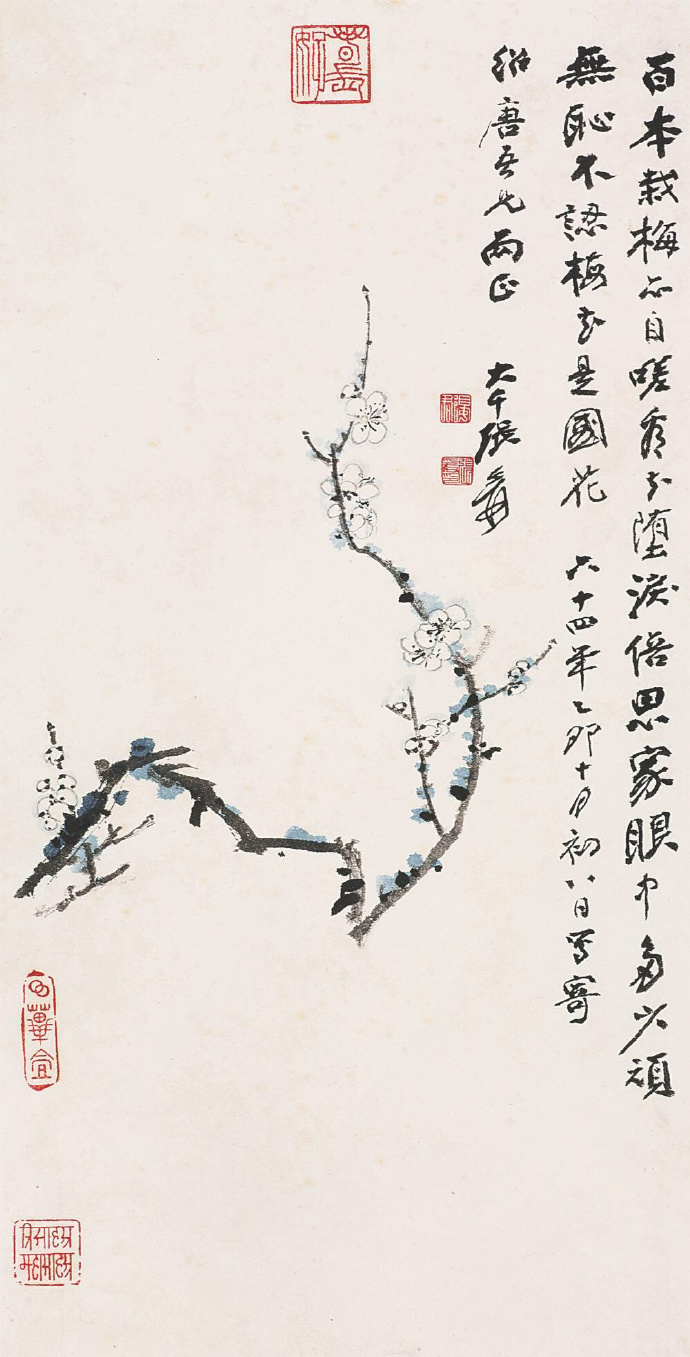 百本栽梅亦自嗟看花墮淚倍思家眼中多少頑
無恥不認梅花是國花 六十四年乙卯十月初八日寫寄
紹唐吾兄兩正 大千張爰